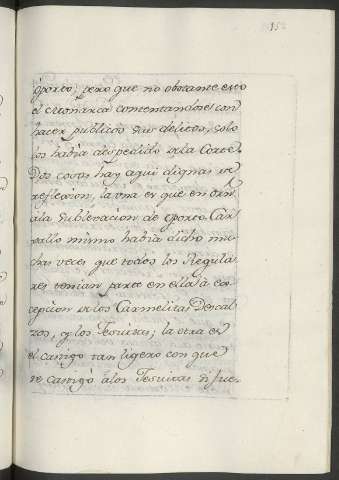 152
oporto; pero que no obstante esto
el Monarca contentandose con
hacer publicos sus delitos, solo
los habia despedido de la Corte.
Dos cosas hay aqui dignas de
reflexion, la una es que en orn
a la sublevacion de oporto Car
vallo mismo habia dicho mu
chas veces que todos los Regula
res tenian parte en ella, à ex
cepcion de los Carmelitas Descal
zos, y los Jesuitas; la otra es
el castigo tan ligero con que
se castigò à los Jesuitas si fue-